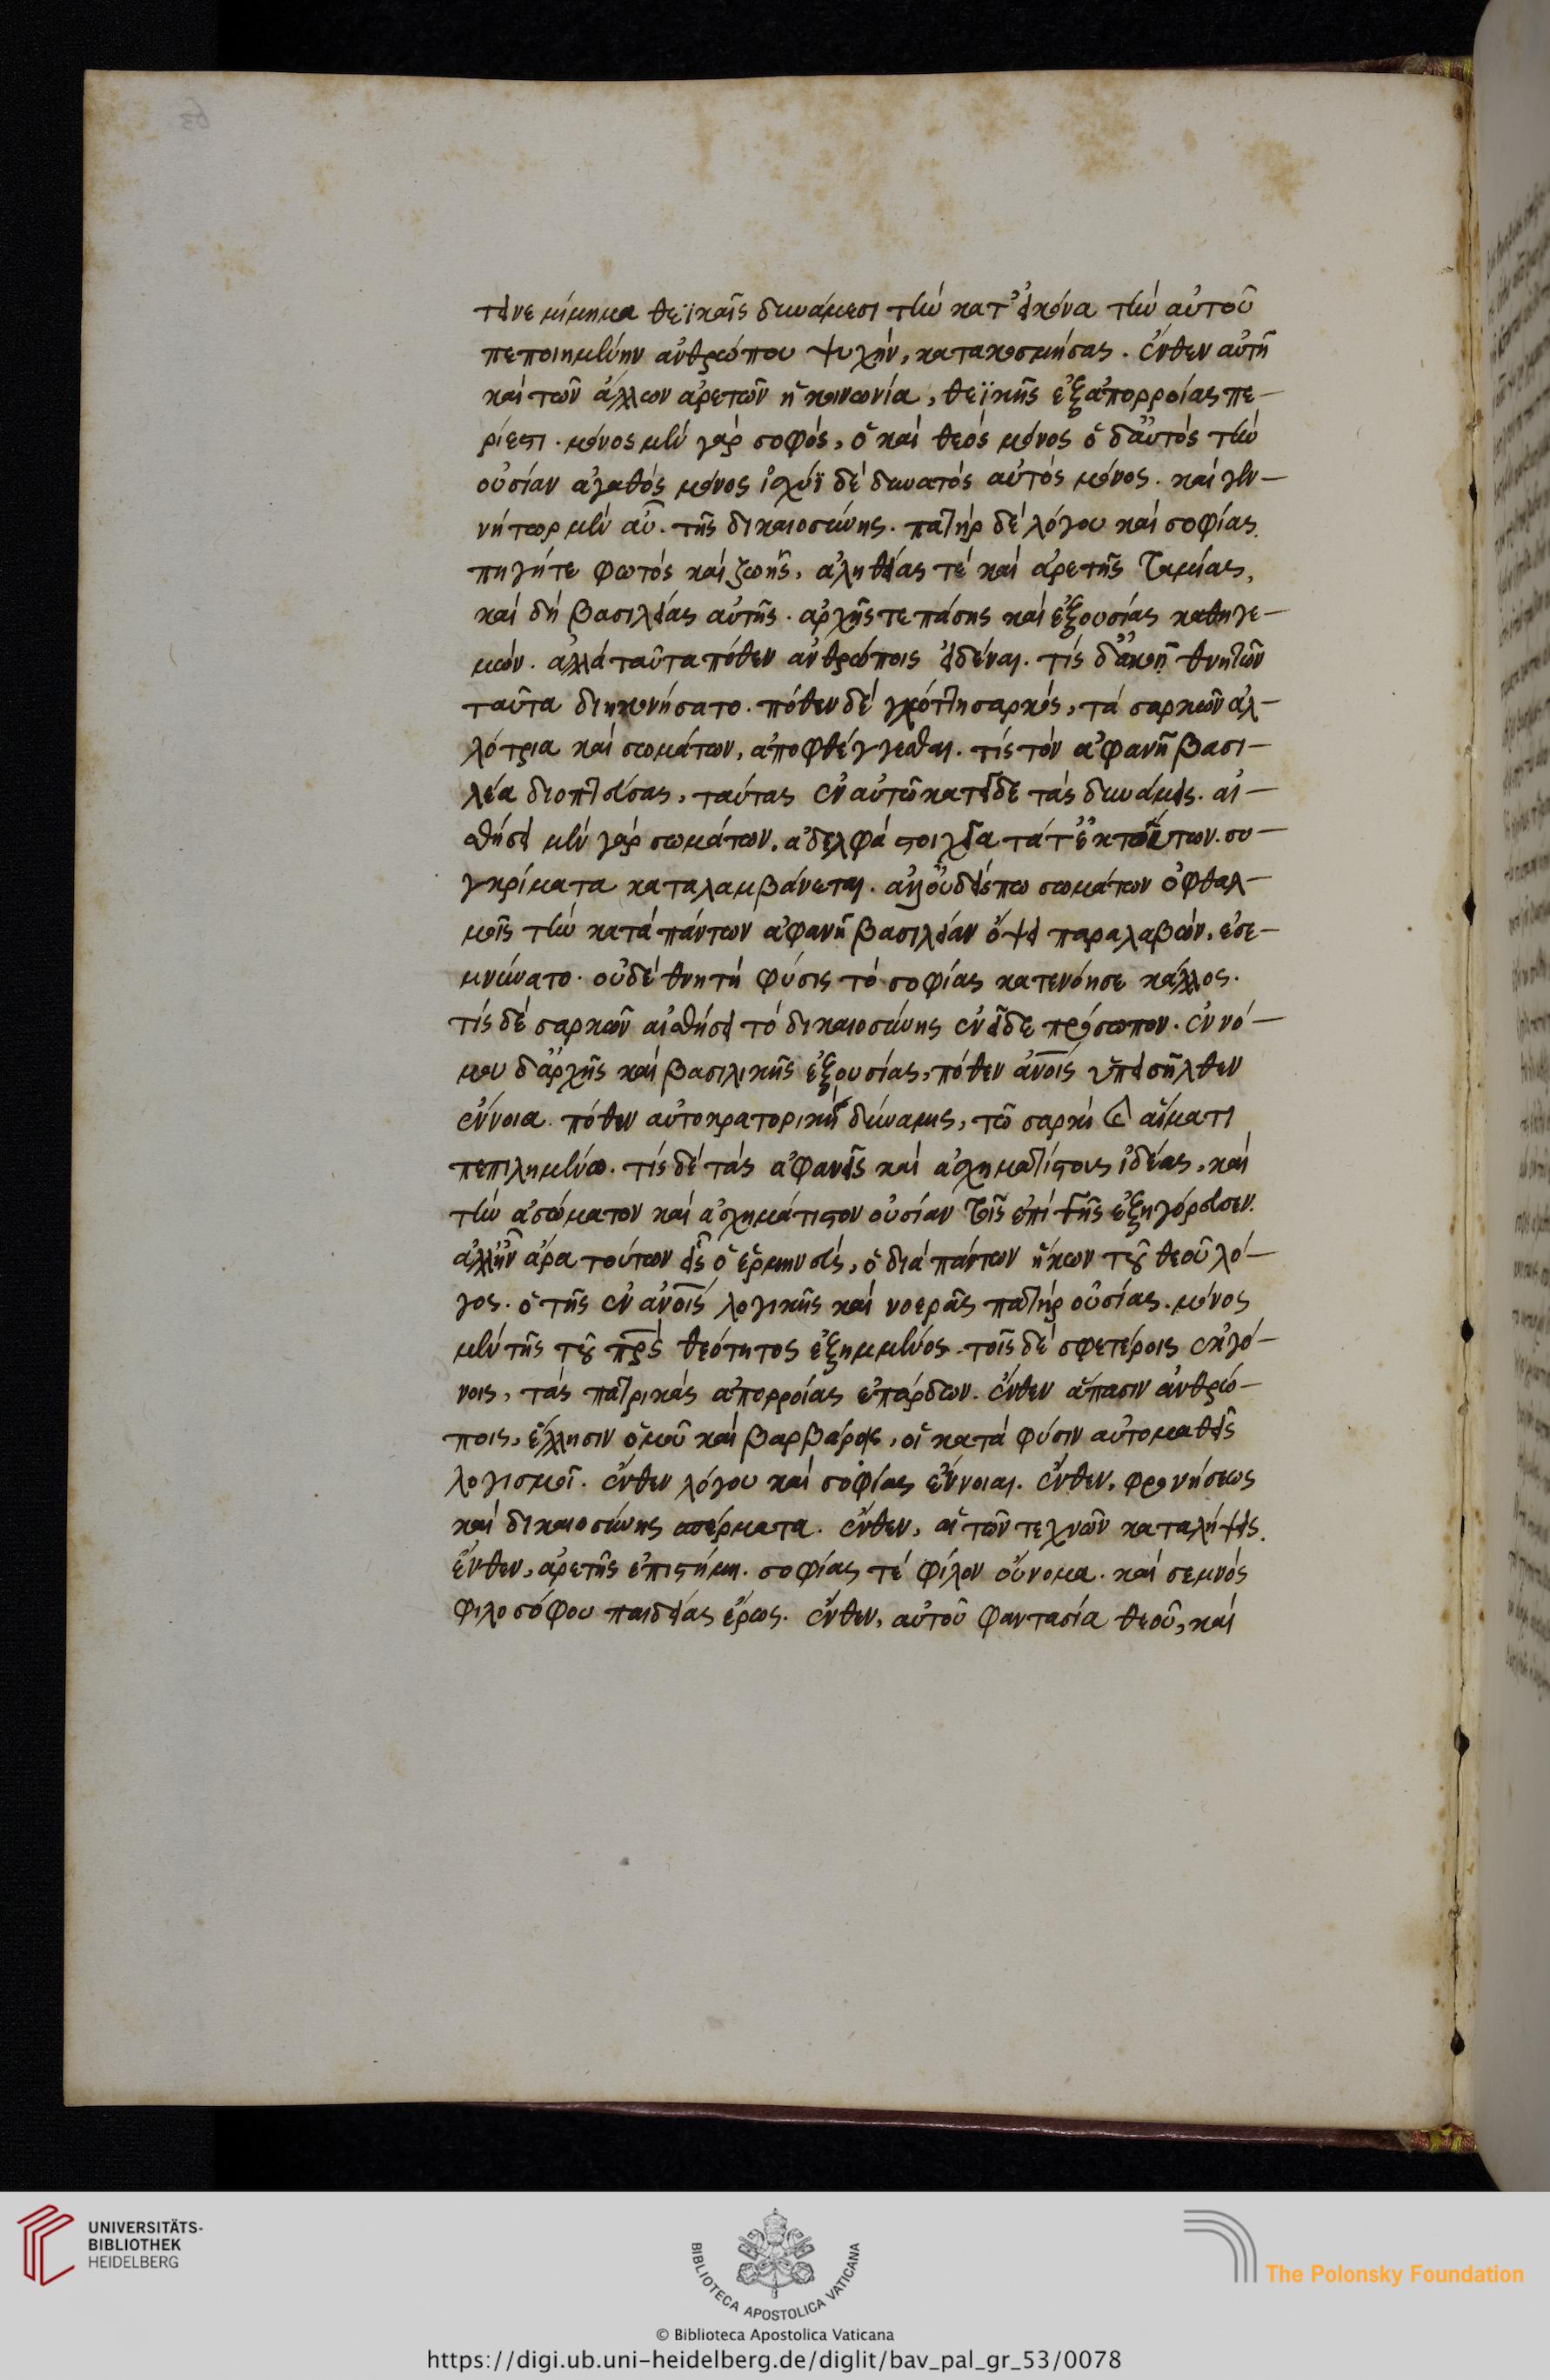 τεινε μίμημα θεϊκαῖς δυνάμεσι τὴν κατ᾽ εἰκόνα τὴν αὐτοῦ
πεποιημένην ἀνθρώπου ψυχήν, κατακοσμήσας. ἔνθεν αὐτῇ
καὶ τῶν ἄλλων ἀρετῶν ἡ κοινωνία, θεϊκῆς ἐξ ἀπορροίας πε-
ρίεστι. μόνος μὲν γὰρ σοφός, ὁ καὶ θεὸς μόνος ὁ δ᾽ αὐτὸς τὴν
οὐσίαν ἀγαθός μόνος ἰσχύϊ δὲ δυνατὸς αὐτὸς μόνος. καὶ γεν-
νήτωρ μὲν αὖ. τῆς δικαιοσύνης. πατὴρ δὲ λόγου καὶ σοφίας.
πηγή τε φωτὸς καὶ ζωῆς, ἀληθείας τὲ καὶ ἀρετῆς ταμίας,
καὶ δὴ βασιλείας αὐτῆς. ἀρχῆς τε πάσης καὶ ἐξουσίας καθηγε-
μών. ἀλλὰ ταῦτα πόθεν ἀνθρώποις εἰδέναι. τίς δ᾽ ἀκοῇ θνητῶν
ταῦτα διηκονήσατο. πόθεν δὲ γλώττῃ σαρκός, τὰ σαρκῶν ἀλ-
λότρια καὶ σωμάτων, ἀποφθέγγεσθαι. τίς τὸν ἀφανῆ βασι-
λέα διοπτεύσας, ταύτας ἐν αὐτῷ κατεῖδε τὰς δυνάμεις. αἰ-
σθήσει μὲν γὰρ σωμάτων. ἀδελφὰ στοιχεῖα τά τ᾽ ἐκ τούτων. συ-
γκρίματα καταλαμβάνεται. ἀλλ᾽ οὐδείς πω σωμάτων ὀφθαλ-
μοῖς τὴν κατὰ πάντων ἀφανῆ βασιλείαν ὄψει παραλαβών. ἐσε-
μνύνατο. οὐδὲ θνητὴ φύσις τὸ σοφίας κατενόησε κάλλος.
τίς δὲ σαρκῶν αἰσθήσει τὸ δικαιοσύνης ἐνεῖδε πρόσωπον. ἐννό-
μου δ᾽ ἀρχῆς καὶ βασιλικῆς ἐξουσίας, πόθεν ἀνοῖς ὑπεισῆλθεν
ἔννοια. πόθεν αὐτοκρατορικὴ δύναμις, τῷ σαρκὶ καὶ αἵματι
πεπιλημένῳ. τίς δὲ τὰς ἀφανεῖς καὶ ἀσχηματίστους ἰδέας, καὶ
τὴν ἀσώματον καὶ ἀσχημάτιστον οὐσίαν τοῖς ἐπὶ γῆς ἐξηγόρευσεν.
ἀλλ᾽ ἦν ἄρα τούτων εἷς ὁ ἑρμηνεύς, ὁ διὰ πάντων ἥκων τοῦ θεοῦ λό-
γος. ὁ τῆς ἐν ἀνοῖς λογικῆς καὶ νοερᾶς πατὴρ οὐσίας. μόνος
μὲν τῆς τοῦ πρς θεότητος ἐξημμένος. τοῖς δὲ σφετέροις ἐκγό-
νοις, τὰς πατρικὰς ἀπορροίας ἐπάρδων. ἔνθεν ἅπασιν ἀνθρώ-
ποις, ἕλλησιν ὁμοῦ καὶ βαρβάροις, οἱ κατὰ φύσιν αὐτομαθεῖς
λογισμοί. ἔνθεν λόγου καὶ σοφίας ἔννοιαι. ἔνθεν, φρονήσεως
καὶ δικαιοσύνης σπέρματα. ἔνθεν, αἱ τῶν τεχνῶν καταλήψεις.
ἔνθεν, ἀρετῆς ἐπιστήμη. σοφίας τὲ φίλον οὔνομα. καὶ σεμνὸς
φιλοσόφου παιδείας ἔρως. ἔνθεν, αὐτοῦ φαντασία θεοῦ, καὶ
UNIVERSITÄTS-
BIBLIOTHEK
HEIDELBERG
BIBLIOTECA APOSTOLICA VATICANA
The Polonsky Foundation
© Biblioteca Apostolica Vaticana
https://digi.ub.uni-heidelberg.de/diglit/bav_pal_gr_53/0078